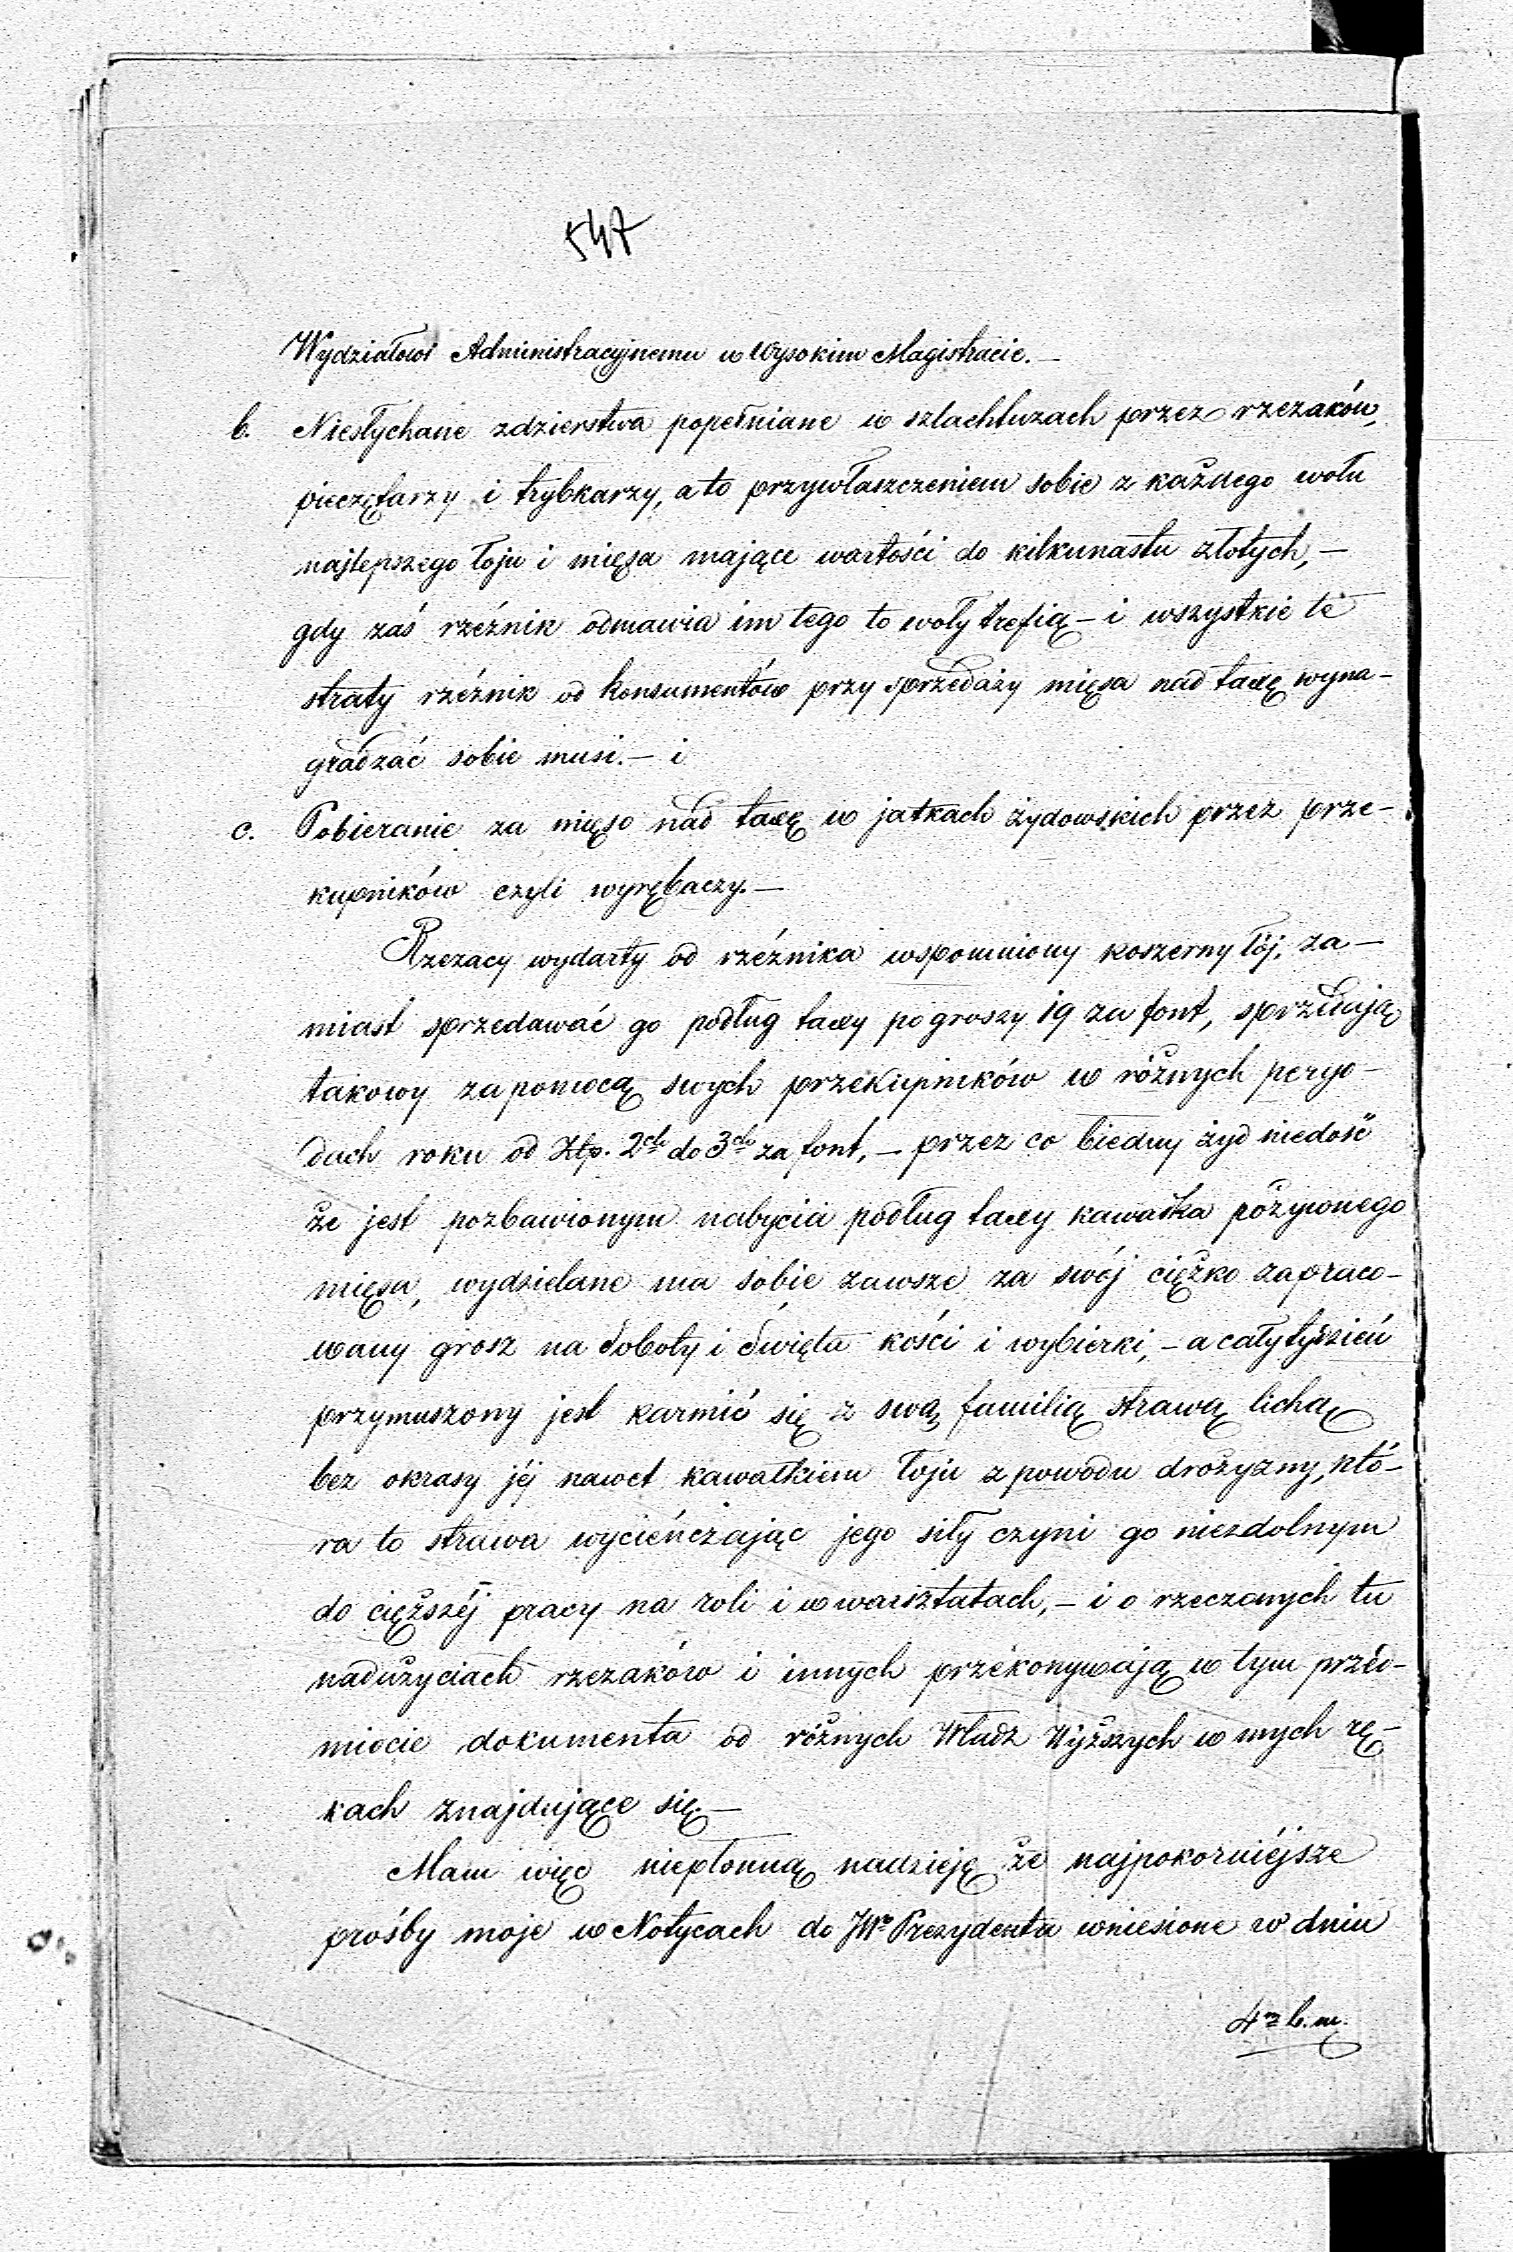 547
Wydziałowi Administracyjnemu w Wysokim Magistracie. —
b. Niesłychane zdzierstwa popełniane w szlachtuzach przez rzezaków,
pieczętarzy i trybkarzy, a to przywłaszczeniem sobie z każdego wołu
najlepszego łoju i mięsa mające wartości do kilkunastu złotych, —
gdy zaś rzéźnik odmawia im tego to woły trefią — i wszystkie te
straty rzéźnik od konsumentów przy sprzedaży mięsa nad taxę wyna-
gradzać sobie musi. — i
c. Pobieranie za mięso nad taxę w jatkach żydowskich przez prze-
kupników czyli wyrębaczy. —
Rzezacy wydarty od rzéźnika wspomniony koszerny łój, za-
miast sprzedawać go podług taxy po groszy 19 za font, sprzedają
takowy za pomocą swych przekupników w różnych peryo-
dach roku od Złp. 2ch do 3ch za font, — przez co biedny żyd niedość
że jest pozbawionym nabycia podług taxy kawałka pożywnego
mięsa, wydzielane ma sobie zawsze za swój ciężko zapraco-
wany grosz na Soboty i Święta kości i wybierki, — a cały tydzień
przymuszony jest karmić się z swą familią strawą lichą
bez okrasy jéj nawet kawałkiem łoju z powodu drożyzny, któ-
ra to strawa wycieńczając jego siły czyni go niezdolnym
do cięższéj pracy na roli i w warsztatach, — i o rzeczonych tu
nadużyciach rzezaków i innych przekonywają w tym przed-
miocie dokumenta od różnych Władz Wyższych w mych rę-
kach znajdujące się. —
Mam więc niepłonną nadzieję że najpokorniéjsze
prośby moje w Notycach do JWo Prezydenta wniesione w dniu
4m b. m.